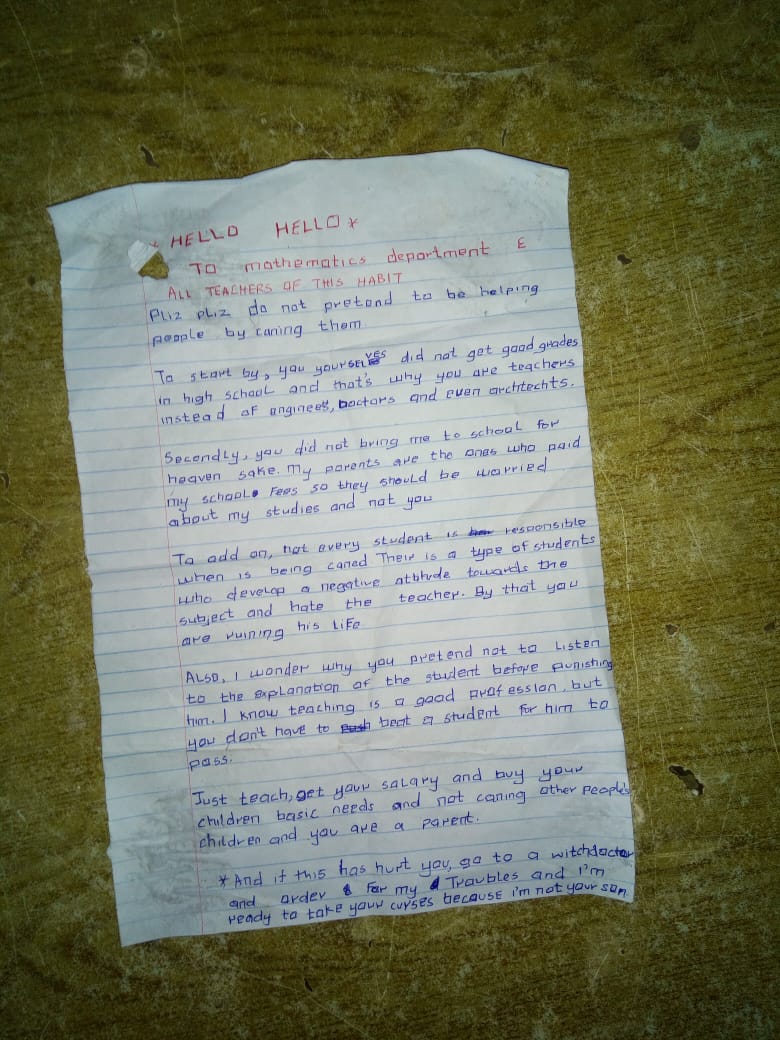 * HELLO HELLO *
TO mathematics department &
ALL TEACHERS OF THIS HABIT
Pliz pliz do not pretend to be helping
people by caning them
To start by, you yourselves did not get good grades
in high school and that's why you are teachers
instead of engineers, Doctors and even archtechts.
Secondly, you did not bring me to school for
heaven sake. My parents are the ones who paid
my school fees so they should be worried
about my studies and not you
To add on, not every student is responsible
when is being caned Their is a type of students
who develop a negative attitude towards the
subject and hate the teacher. By that you
are ruining his life
Also, I wonder why you pretend not to listen
to the explanation of the student before punishing
him. I know teaching is a good profession, but
you don't have to beat a student for him to
pass.
Just teach, get your salary and buy your
children basic needs and not caning other people's
children and you are a parent.
* And if this has hurt you, go to a witchdoctor
and order for my Troubles and I'm
ready to take your curses because i'm not your son